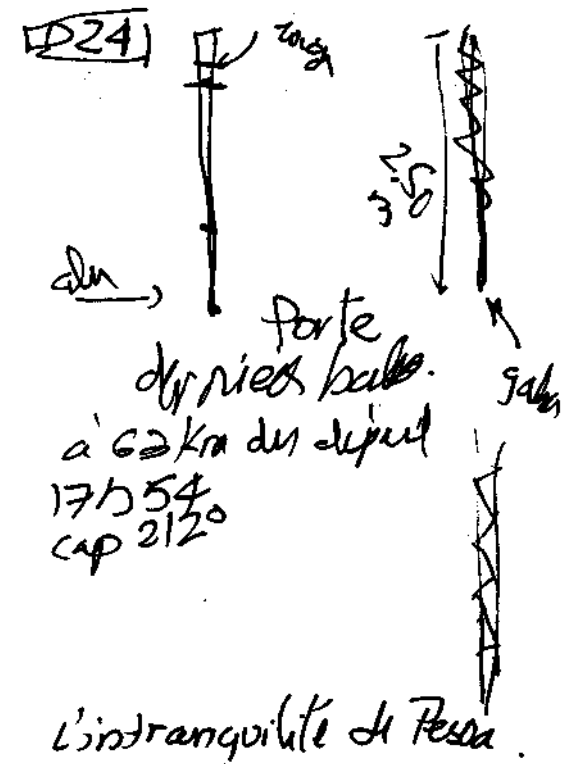 D24
rouge
3.50
alu
galva
Porte
dernière balise.
à 62 Km du départ
17h54
cap 212°
L'intranquilité de Pesoa.